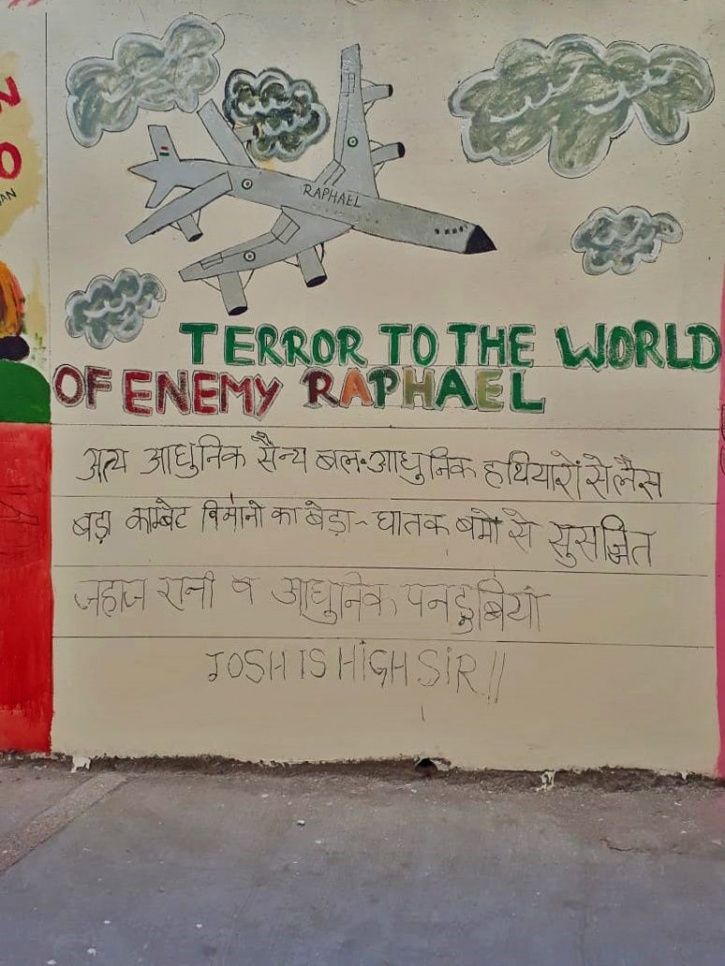 RAPHAEL
TERROR TO THE WORLD
OF ENEMY RAPHAEL
अत्य आधुनिक सैन्य बल आधुनिक हथियारों से लैस
बड़ा काम्बेट विमानो का बेड़ा - घातक बमो से सुसज्जित
जहाज रानी व आधुनिक पनडुबियां
JOSH IS HIGH SIR!!